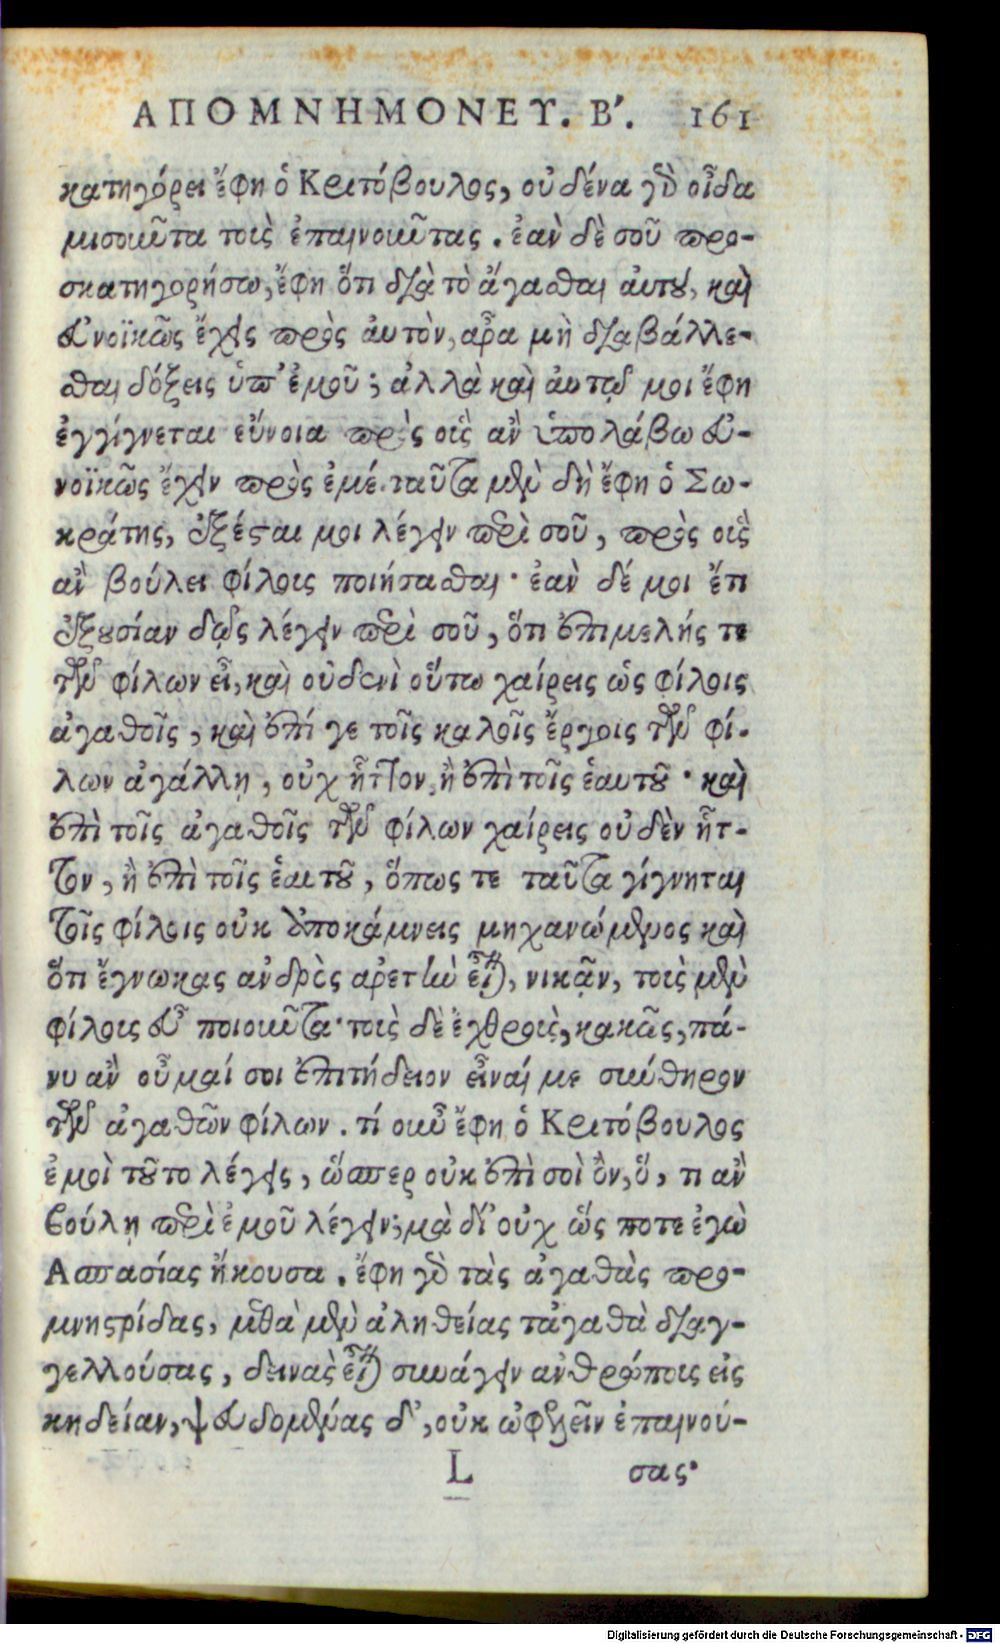 ΑΠΟΜΝΗΜΟΝΕΥ. Β΄. 161
κατηγόρει ἔφη ὁ Κριτόβουλος, οὐδένα γὰρ οἶδα
μισοῦντα τοὺς ἐπαινοῦντας. ἐὰν δὲ σοῦ προ-
σκατηγορήσω, ἔφη ὅτι διὰ τὸ ἄγασθαι αὐτοῦ, καὶ
εὐνοϊκῶς ἔχεις πρὸς ἀυτὸν, ἆρα μὴ διαβάλλε-
σθαι δόξεις ὑπ' ἐμοῦ; ἀλλὰ καὶ ἀυτῷ μοι ἔφη
ἐγγίγνεται εὔνοια πρὸς οὓς ἂν ὑπολάβω εὐ-
νοϊκῶς ἔχειν πρὸς ἐμέ. ταῦτα μὲν δὴ ἔφη ὁ Σω-
κράτης, ἐξέσται μοι λέγειν περὶ σοῦ, πρὸς οὓς
ἂν βούλει φίλοις ποιήσασθαι· ἐὰν δέ μοι ἔτι
ἐξουσίαν δῷς λέγειν περὶ σοῦ, ὅτι ἐπιμελής τε
τῶν φίλων εἶ, καὶ οὐδενὶ οὕτω χαίρεις ὡς φίλοις
ἀγαθοῖς, καὶ ἐπί γε τοῖς καλοῖς ἔργοις τῶν φί-
λων ἀγάλλῃ, οὐχ ἧττον, ἢ ἐπὶ τοῖς ἑαυτοῦ· καὶ
ἐπὶ τοῖς ἀγαθοῖς τῶν φίλων χαίρεις οὐδὲν ἧτ-
τον, ἢ ἐπὶ τοῖς ἑαυτοῦ, ὅπως τε ταῦτα γίγνηται
τοῖς φίλοις οὐκ ἀποκάμνεις μηχανώμενος καὶ
ὅτι ἔγνωκας ἀνδρὸς ἀρετὴν εἶναι, νικᾷν, τοὺς μὲν
φίλοις εὖ ποιοῦντα· τοὺς δὲ ἐχθροὺς, κακῶς, πά-
νυ ἂν οὖμαί σοι ἐπιτήδειον εἶναί με σύνθηρον
τῶν ἀγαθῶν φίλων. τί οὖν ἔφη ὁ Κριτόβουλος
ἐμοὶ τοῦτο λέγεις, ὥσπερ οὐκ ἐπὶ σοὶ ὂν, ὅ, τι ἂν
βούλῃ περὶ ἐμοῦ λέγειν; μὰ δί' οὐχ ὥς ποτε ἐγὼ
Ασπασίας ἤκουσα. ἔφη γὰρ τὰς ἀγαθὰς προ-
μνηστρίδας, μετὰ μὲν ἀληθείας τἀγαθὰ διαγ-
γελλούσας, δεινὰς εἶναι συνάγειν ἀνθρώποις εἰς
κηδείαν, ψευδομένας δ', οὐκ ὠφελεῖν ἐπαινού-
L σας·
Digitalisierung gefördert durch die Deutsche Forschungsgemeinschaft - DFG